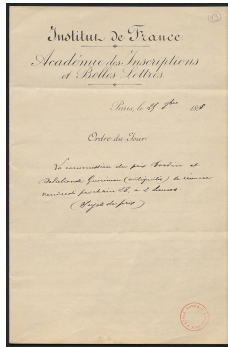 Institut de France
Académie des Inscriptions
et Belles-Lettres
Paris, le 25 9bre 188
Ordre du Jour
La commission du prix Bordin et
Delalande Guérineau (antiquités) se réunira
vendredi prochain 28, à 2 heures
(Sujet du prix)